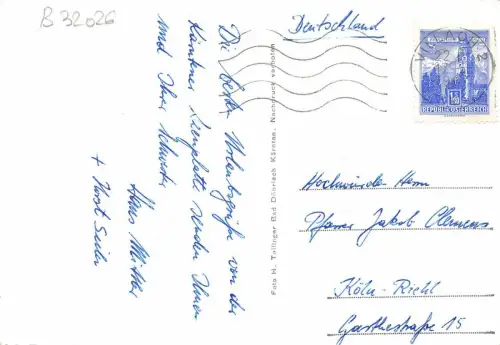 B 32026
Die besten Urlaubsgrüße von der
Kärntner Seenplatte senden Ihnen
und Ihrer Schwester
Hans
+ Horst
Foto H. Tollinger Bad Döbriach Kärnten. Nachdruck verboten
Deutschland
REPUBLIK ÖSTERREICH
Hochwürde-Herrn
Pfarrer Jakob Clemens
Köln-Riehl
Garthestraße 15